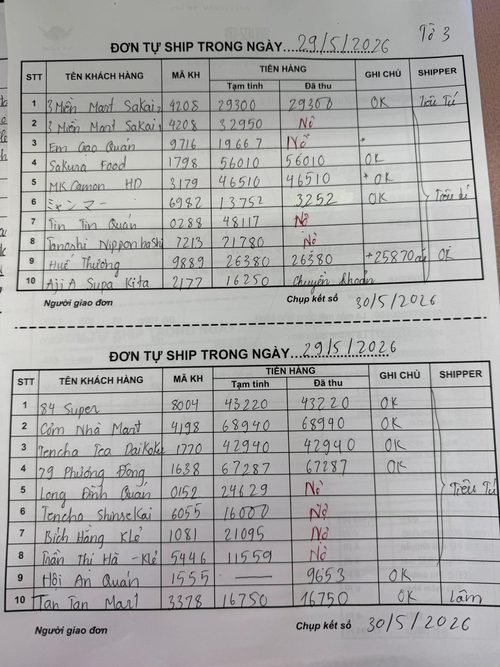 Tờ 3
ĐƠN TỰ SHIP TRONG NGÀY...29/5/2026
STT TÊN KHÁCH HÀNG MÃ KH TIỀN HÀNG GHI CHÚ SHIPPER
Tạm tính Đã thu
1 3 Miền Mart Sakai 2 4208 29300 29300 OK Triều Tú
2 3 Miền Mart Sakai 4208 32950 Nợ
3 Em Gạo Quán 9716 19667 Nợ
4 Sakura Food 1798 56010 56010 OK
5 MK Camon HD 3179 46510 46510 OK
6 ミャンマー 6982 13752 3252 OK
7 Tin Tin Quán 0288 48117 Nợ
8 Tanoshi Nipponbashi 7213 21780 Nợ
9 Huế Thương 9889 26380 26380 +25870 OK
10 Aji A Supa Kita 2177 16250 Chuyển khoản
Người giao đơn Chụp kết số 30/5/2026
ĐƠN TỰ SHIP TRONG NGÀY...29/5/2026
STT TÊN KHÁCH HÀNG MÃ KH TIỀN HÀNG GHI CHÚ SHIPPER
Tạm tính Đã thu
1 84 Super 8004 43220 43220 OK
2 Cơm Nhà Mart 4198 68940 68940 OK
3 Tencha Tea Daikoku 1770 42940 42940 OK
4 79 Phương Đông 1638 67287 67287 OK
5 Long Đình Quán 0152 24629 Nợ Triều Tú
6 Tencha Shinsekai 6055 16000 Nợ
7 Bích Hằng Klẻ 1081 21095 Nợ
8 Trần Thị Hà - Klẻ 5446 11559 Nợ
9 Hội An Quán 1555 — 9653 OK
10 Tan Tan Mart 3378 16750 16750 OK Lâm
Người giao đơn Chụp kết số 30/5/2026